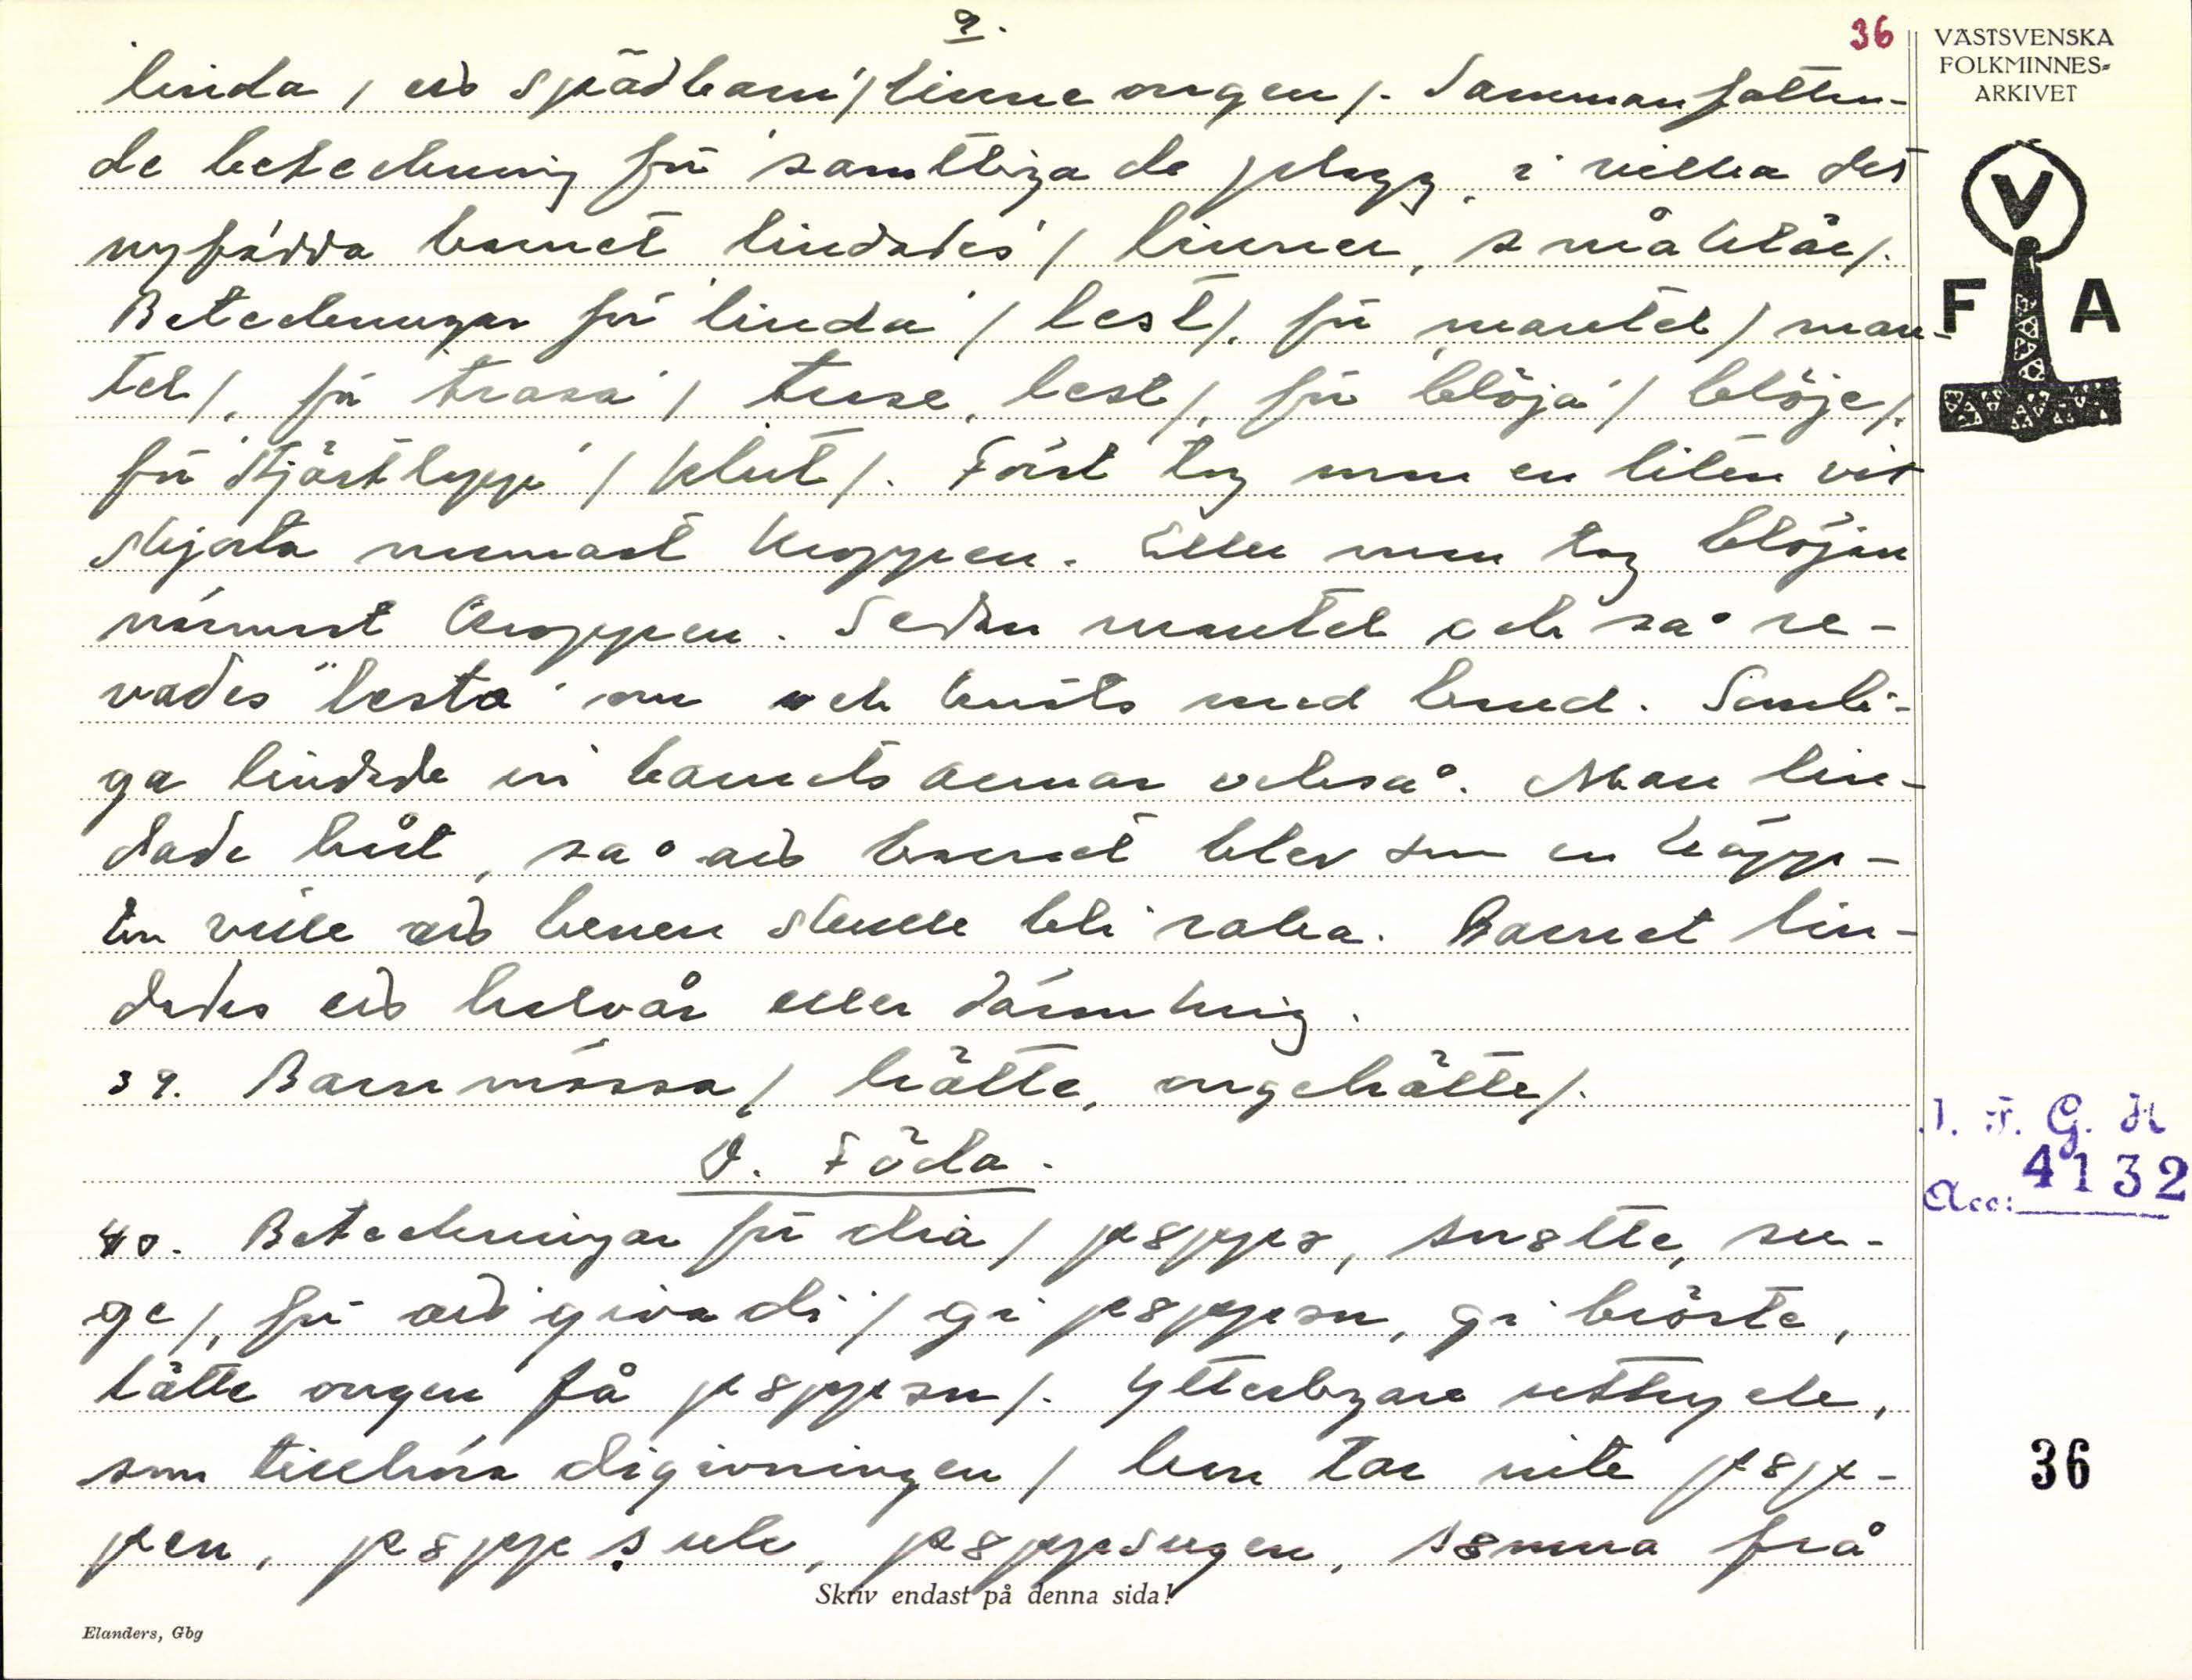 9.
36
VÄSTSVENSKA
FOLKMINNES-
ARKIVET
V
F A
'linda, ett spädbarn' / linne ongen /. Sammanfatten-
de beteckning för 'samtliga de plagg, i vilka det
nyfödda barnet lindades' / linner, småklär /.
Beteckningar för 'linda' / lest /, för 'mantel' / man-
tel /, för 'trasa' / trase, lest /, för 'blöja' / blöje /,
för 'stjärtlapp' / klut /. Först tog man en liten vit
skjorta närmast kroppen. Eller man tog blöjan
närmast kroppen. Sedan mantel och så re-
vades "lesta" om och knöts med band. Somli-
ga lindade in barnets armar också. Man lin-
dade hårt, så att barnet blev som en käpp -
En ville att benen skulle bli raka. Barnet lin-
dades ett halvår eller däromkring.
39. Barnmössa / hätte, ongehätte /.
J. Föda.
40. Beteckningar för dia / pappa, snatte, su-
ge /, för att 'giva di' / gi pappen, gi bröste,
lätte ongen få pappen /. Ytterligare uttryck,
som tillhöra digivningen / han tar inte pap-
pen, papp sule, pappsugen, samma frå
Skriv endast på denna sida!
Elanders, Gbg
I. F. G. H
Acc: 4132
36